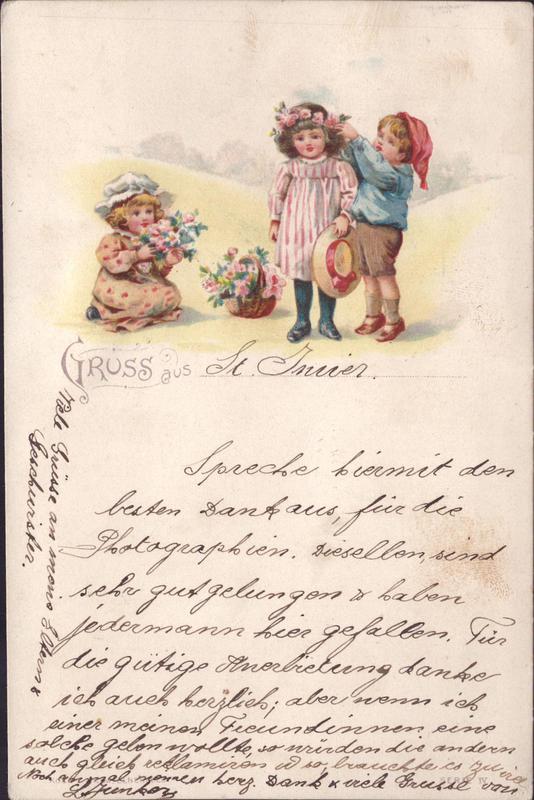 GRUSS aus St. Imier.
Spreche hiermit den
besten Dank aus, für die
Photographien. Dieselben, sind
sehr gut gelungen & haben
jedermann hier gefallen. Für
die gütige Anerbietung danke
ich auch herzlich; aber wenn ich
einer meinen Freundinnen eine
solche geben wollte, so würden die andern
auch gleich reclamiren & so brauchte es zu viel
Noch einmal meinen herz. Dank & viele Grüsse von
Viele Grüsse an meine Eltern &
Geschwister.